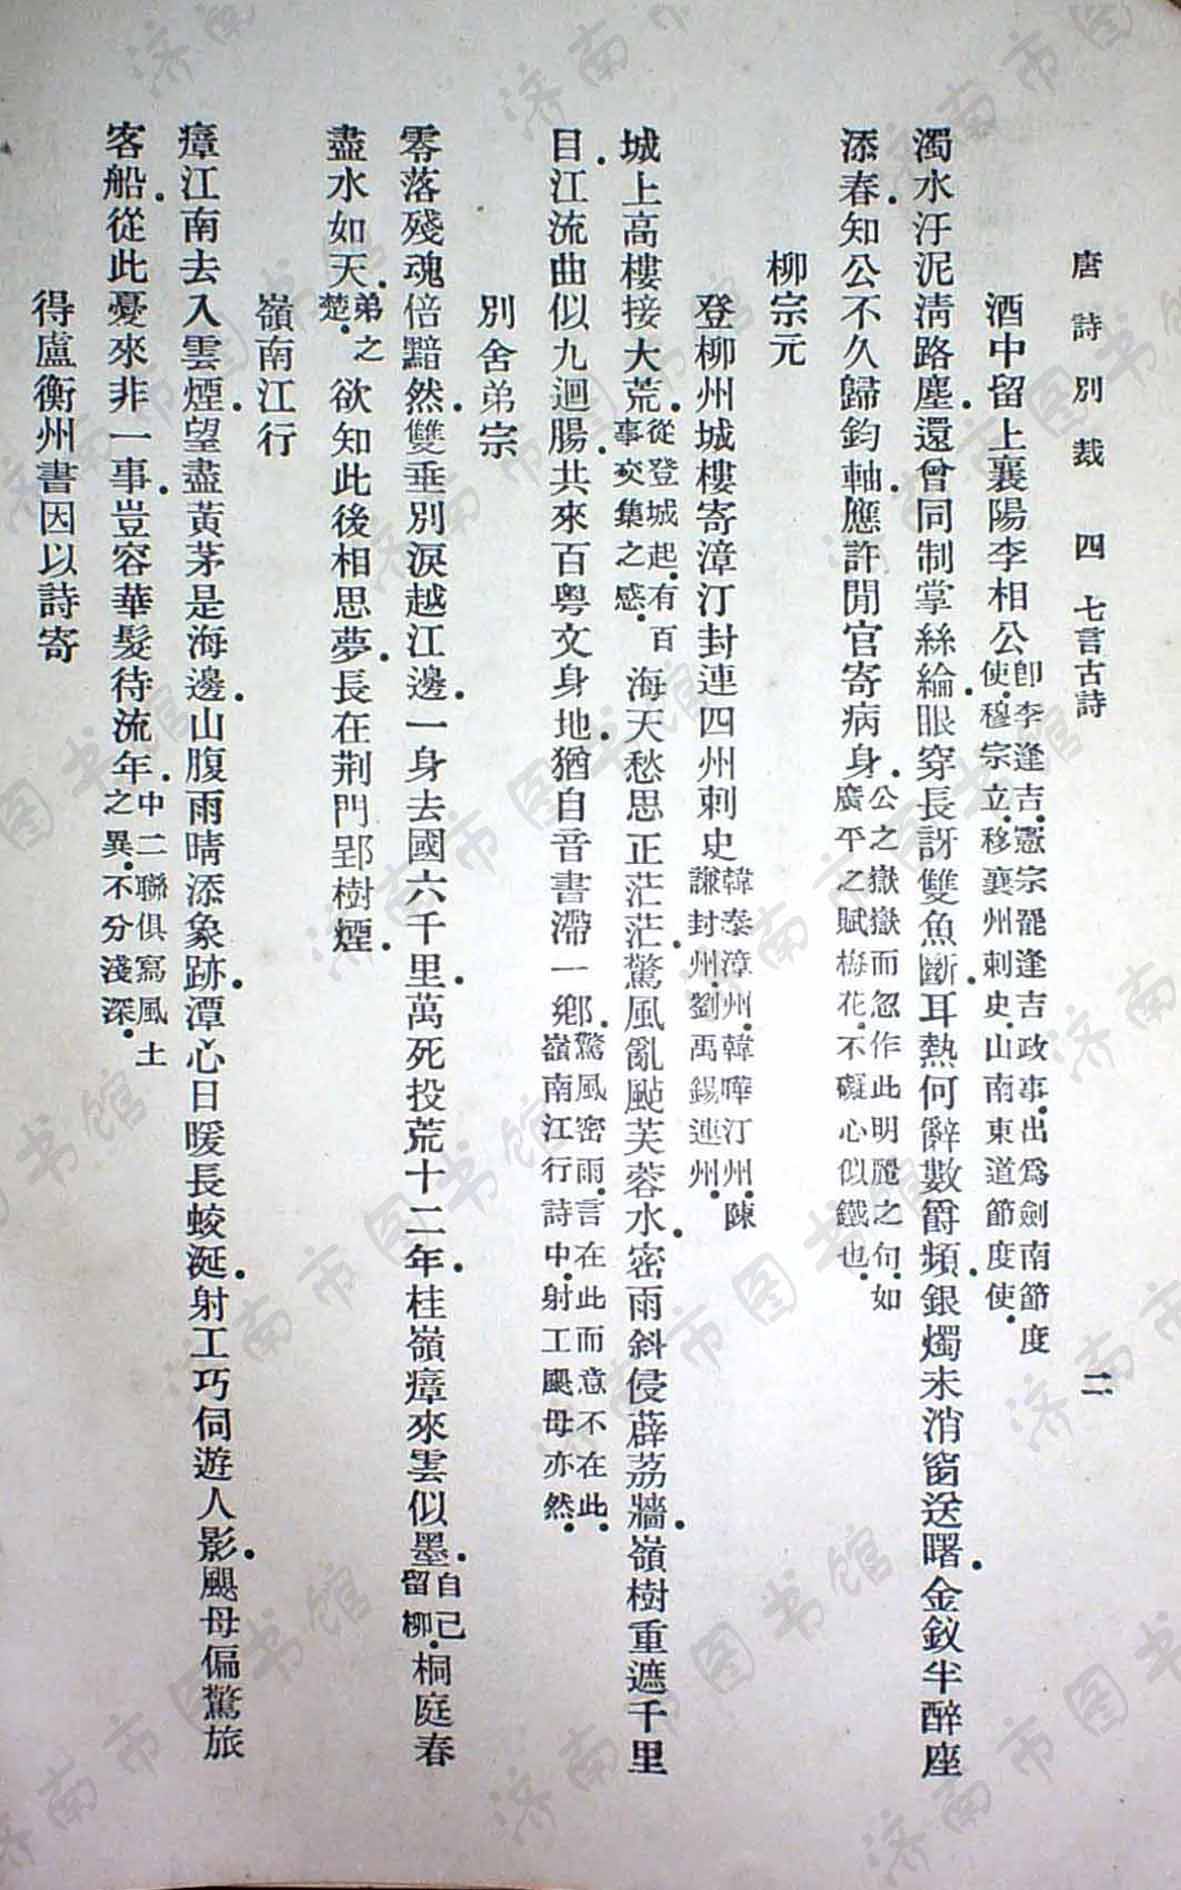 唐詩別裁 四 七言古詩 二
酒中留上襄陽李相公卽李逢吉.憲宗罷逢吉政事.出爲劍南節度使.穆宗立.移襄州刺史.山南東道節度使.
濁水汙泥淸路塵.還曾同制掌絲綸.眼穿長訝雙魚斷.耳熱何辭數爵頻.銀燭未消窗送曙.金釵半醉座
添春.知公不久歸鈞軸.應許閒官寄病身.公之嶽嶽而忽作此明麗之句.如廣平之賦梅花.不礙心似鐵也.
柳宗元
登柳州城樓寄漳汀封連四州刺史韓泰漳州.韓曄汀州.陳謙封州.劉禹錫連州.
城上高樓接大荒.從登城起.有百事交集之感.海天愁思正茫茫.驚風亂颭芙蓉水.密雨斜侵薜荔牆.嶺樹重遮千里
目.江流曲似九迴腸.共來百粵文身地.猶自音書滯一鄉.驚風密雨.言在此而意不在此.嶺南江行詩中.射工颶母亦然.
別舍弟宗
零落殘魂倍黯然.雙垂別淚越江邊.一身去國六千里.萬死投荒十二年.桂嶺瘴來雲似墨.自己留柳.桐庭春
盡水如天.弟之楚.欲知此後相思夢.長在荆門郢樹煙.
嶺南江行
瘴江南去入雲煙.望盡黃茅是海邊.山腹雨晴添象跡.潭心日暖長蛟涎.射工巧伺遊人影.颶母偏驚旅
客船.從此憂來非一事.豈容華髮待流年.中二聯俱寫風土之異.不分淺深.
得盧衡州書因以詩寄